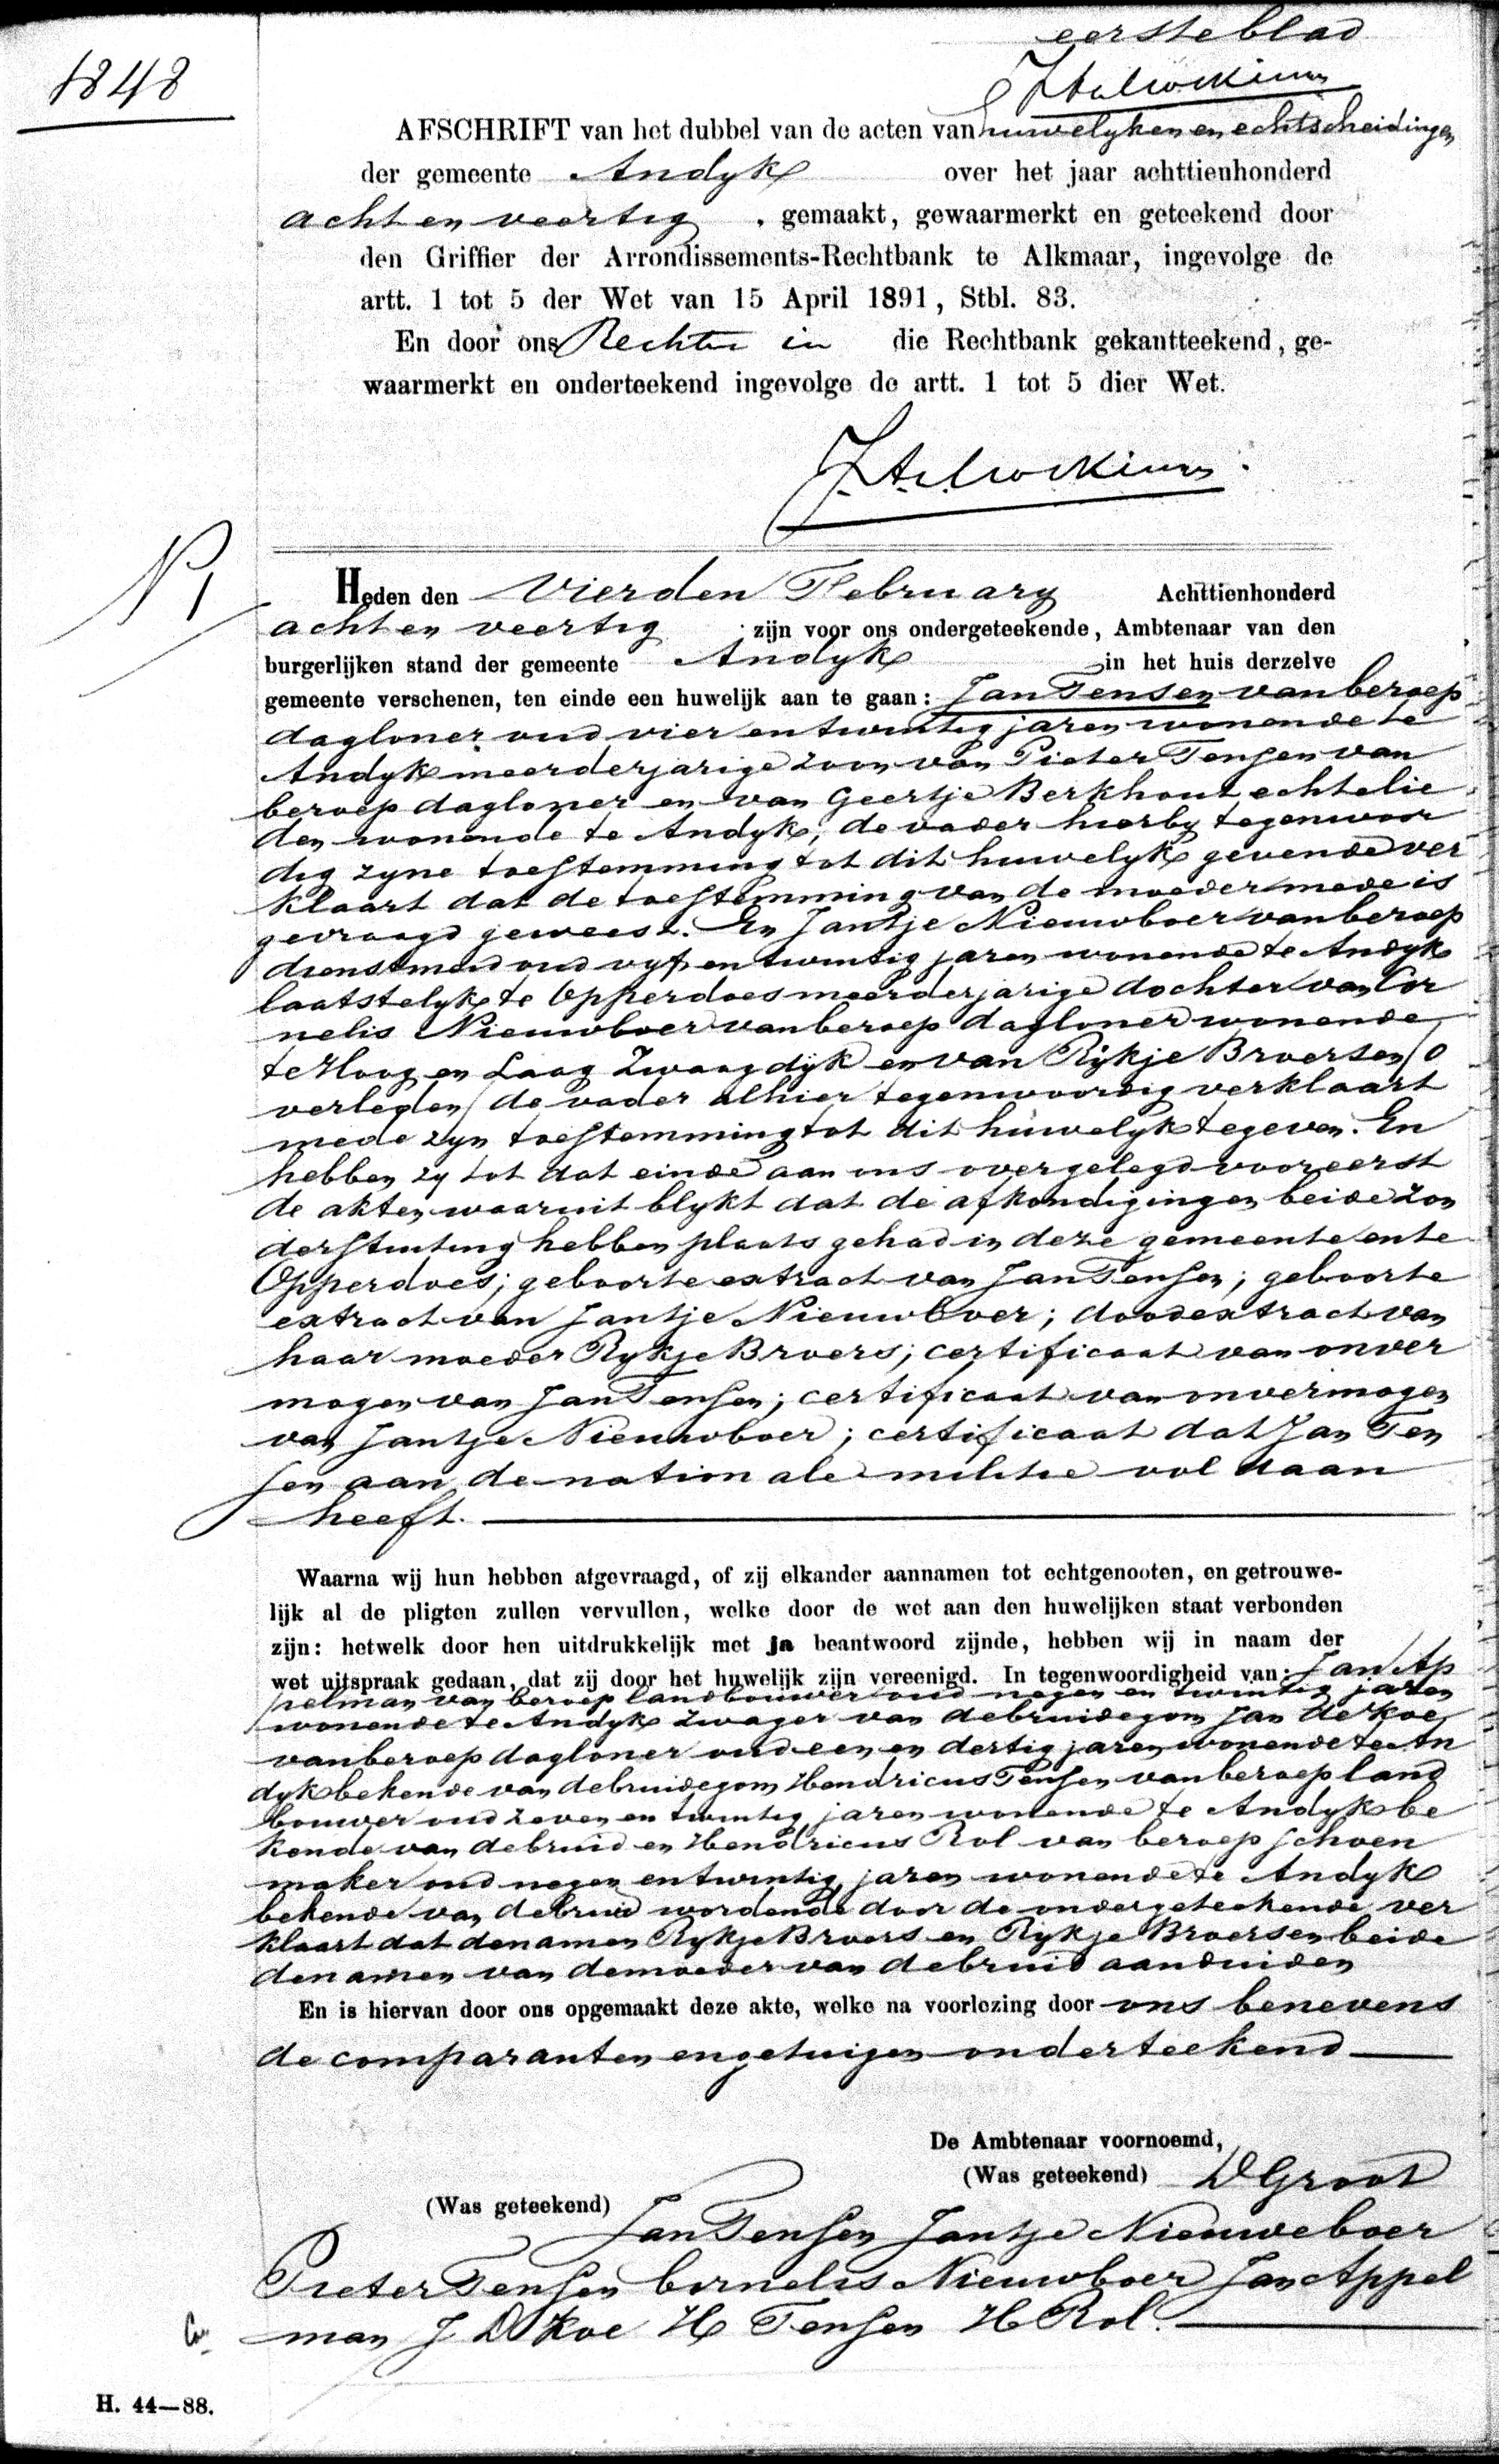 eerste blad
1848
AFSCHRIFT van het dubbel van de acten van huwelyken en echtscheidingen
der gemeente Andyk over het jaar achttienhonderd
acht en veertig , gemaakt, gewaarmerkt en geteekend door
den Griffier der Arrondissements-Rechtbank te Alkmaar, ingevolge de
artt. 1 tot 5 der Wet van 15 April 1891, Stbl. 83.
En door ons Rechter in die Rechtbank gekantteekend, ge-
waarmerkt en onderteekend ingevolge de artt. 1 tot 5 dier Wet.
N 1
Heden den Vierden February Achttienhonderd
acht en veertig zijn voor ons ondergeteekende, Ambtenaar van den
burgerlijken stand der gemeente Andyk in het huis derzelve
gemeente verschenen, ten einde een huwelijk aan te gaan: Jan Tensen van beroep
dagloner oud vier en twintig jaren wonende te
Andyk meerderjarige zoon van Pieter Tensen van
beroep dagloner en van Geertje Berkhout echtelie
den wonende te Andyk, de vader hierby tegenwoor
dig zyne toestemming tot dit huwelyk gevende ver
klaart dat de toestemming van de moeder mede is
gevraagd geweest. En Jantje Nieuwboer van beroep
dienstmeid oud vyf en twintig jaren wonende te Andyk
laatstelyk te Opperdoes meerderjarige dochter van Cor
nelis Nieuwboer van beroep dagloner wonende
te Hoog en Laag Zwaagdijk en van Rijkje Broersen /o
verleden/ de vader alhier tegenwoordig verklaart
mede zyn toestemming tot dit huwelyk te geven. En
hebben zy tot dat einde aan ons overgelegd vooreerst
de akten waaruit blykt dat de afkondigingen beide zon
der stuiting hebben plaats gehad in deze gemeente en te
Opperdoes; geboorte extract van Jan Tensen; geboorte
extract van Jantje Nieuwboer; doodextract van
haar moeder Rykje Broers; certificaat van onver
mogen van Jan Tensen; certificaat van onvermogen
van Jantje Nieuwboer; certificaat dat Jan Ten
sen aan de nationale militie voldaan
heeft.
Waarna wij hun hebben afgevraagd, of zij elkander aannamen tot echtgenooten, en getrouwe-
lijk al de pligten zullen vervullen, welke door de wet aan den huwelijken staat verbonden
zijn: hetwelk door hen uitdrukkelijk met ja beantwoord zijnde, hebben wij in naam der
wet uitspraak gedaan, dat zij door het huwelijk zijn vereenigd. In tegenwoordigheid van: Jan Ap
pelman van beroep landbouwer oud negen en twintig jaren
wonende te Andyk zwager van de bruidegom Jan de Koe
van beroep dagloner oud een en dertig jaren wonende te An
dyk bekende van de bruidegom Hendricus Tensen van beroep land
bouwer oud zeven en twintig jaren wonende te Andyk be
kende van de bruid en Hendricus Rol van beroep schoen
maker oud negen en twintig jaren wonende te Andyk
bekende van de bruid wordende door de ondergeteekende ver
klaart dat de namen Rykje Broers en Rykje Broersen beide
de namen van de moeder van de bruid aanduiden
En is hiervan door ons opgemaakt deze akte, welke na voorlezing door ons benevens
de comparanten en getuigen onderteekend
De Ambtenaar voornoemd,
(Was geteekend) D Groot
(Was geteekend)
Jan Tensen Jantje Nieuweboer
Pieter Tensen Cornelis Nieuwboer Jan Appel
man J D Koe H Tensen H Rol.
H. 44—88.